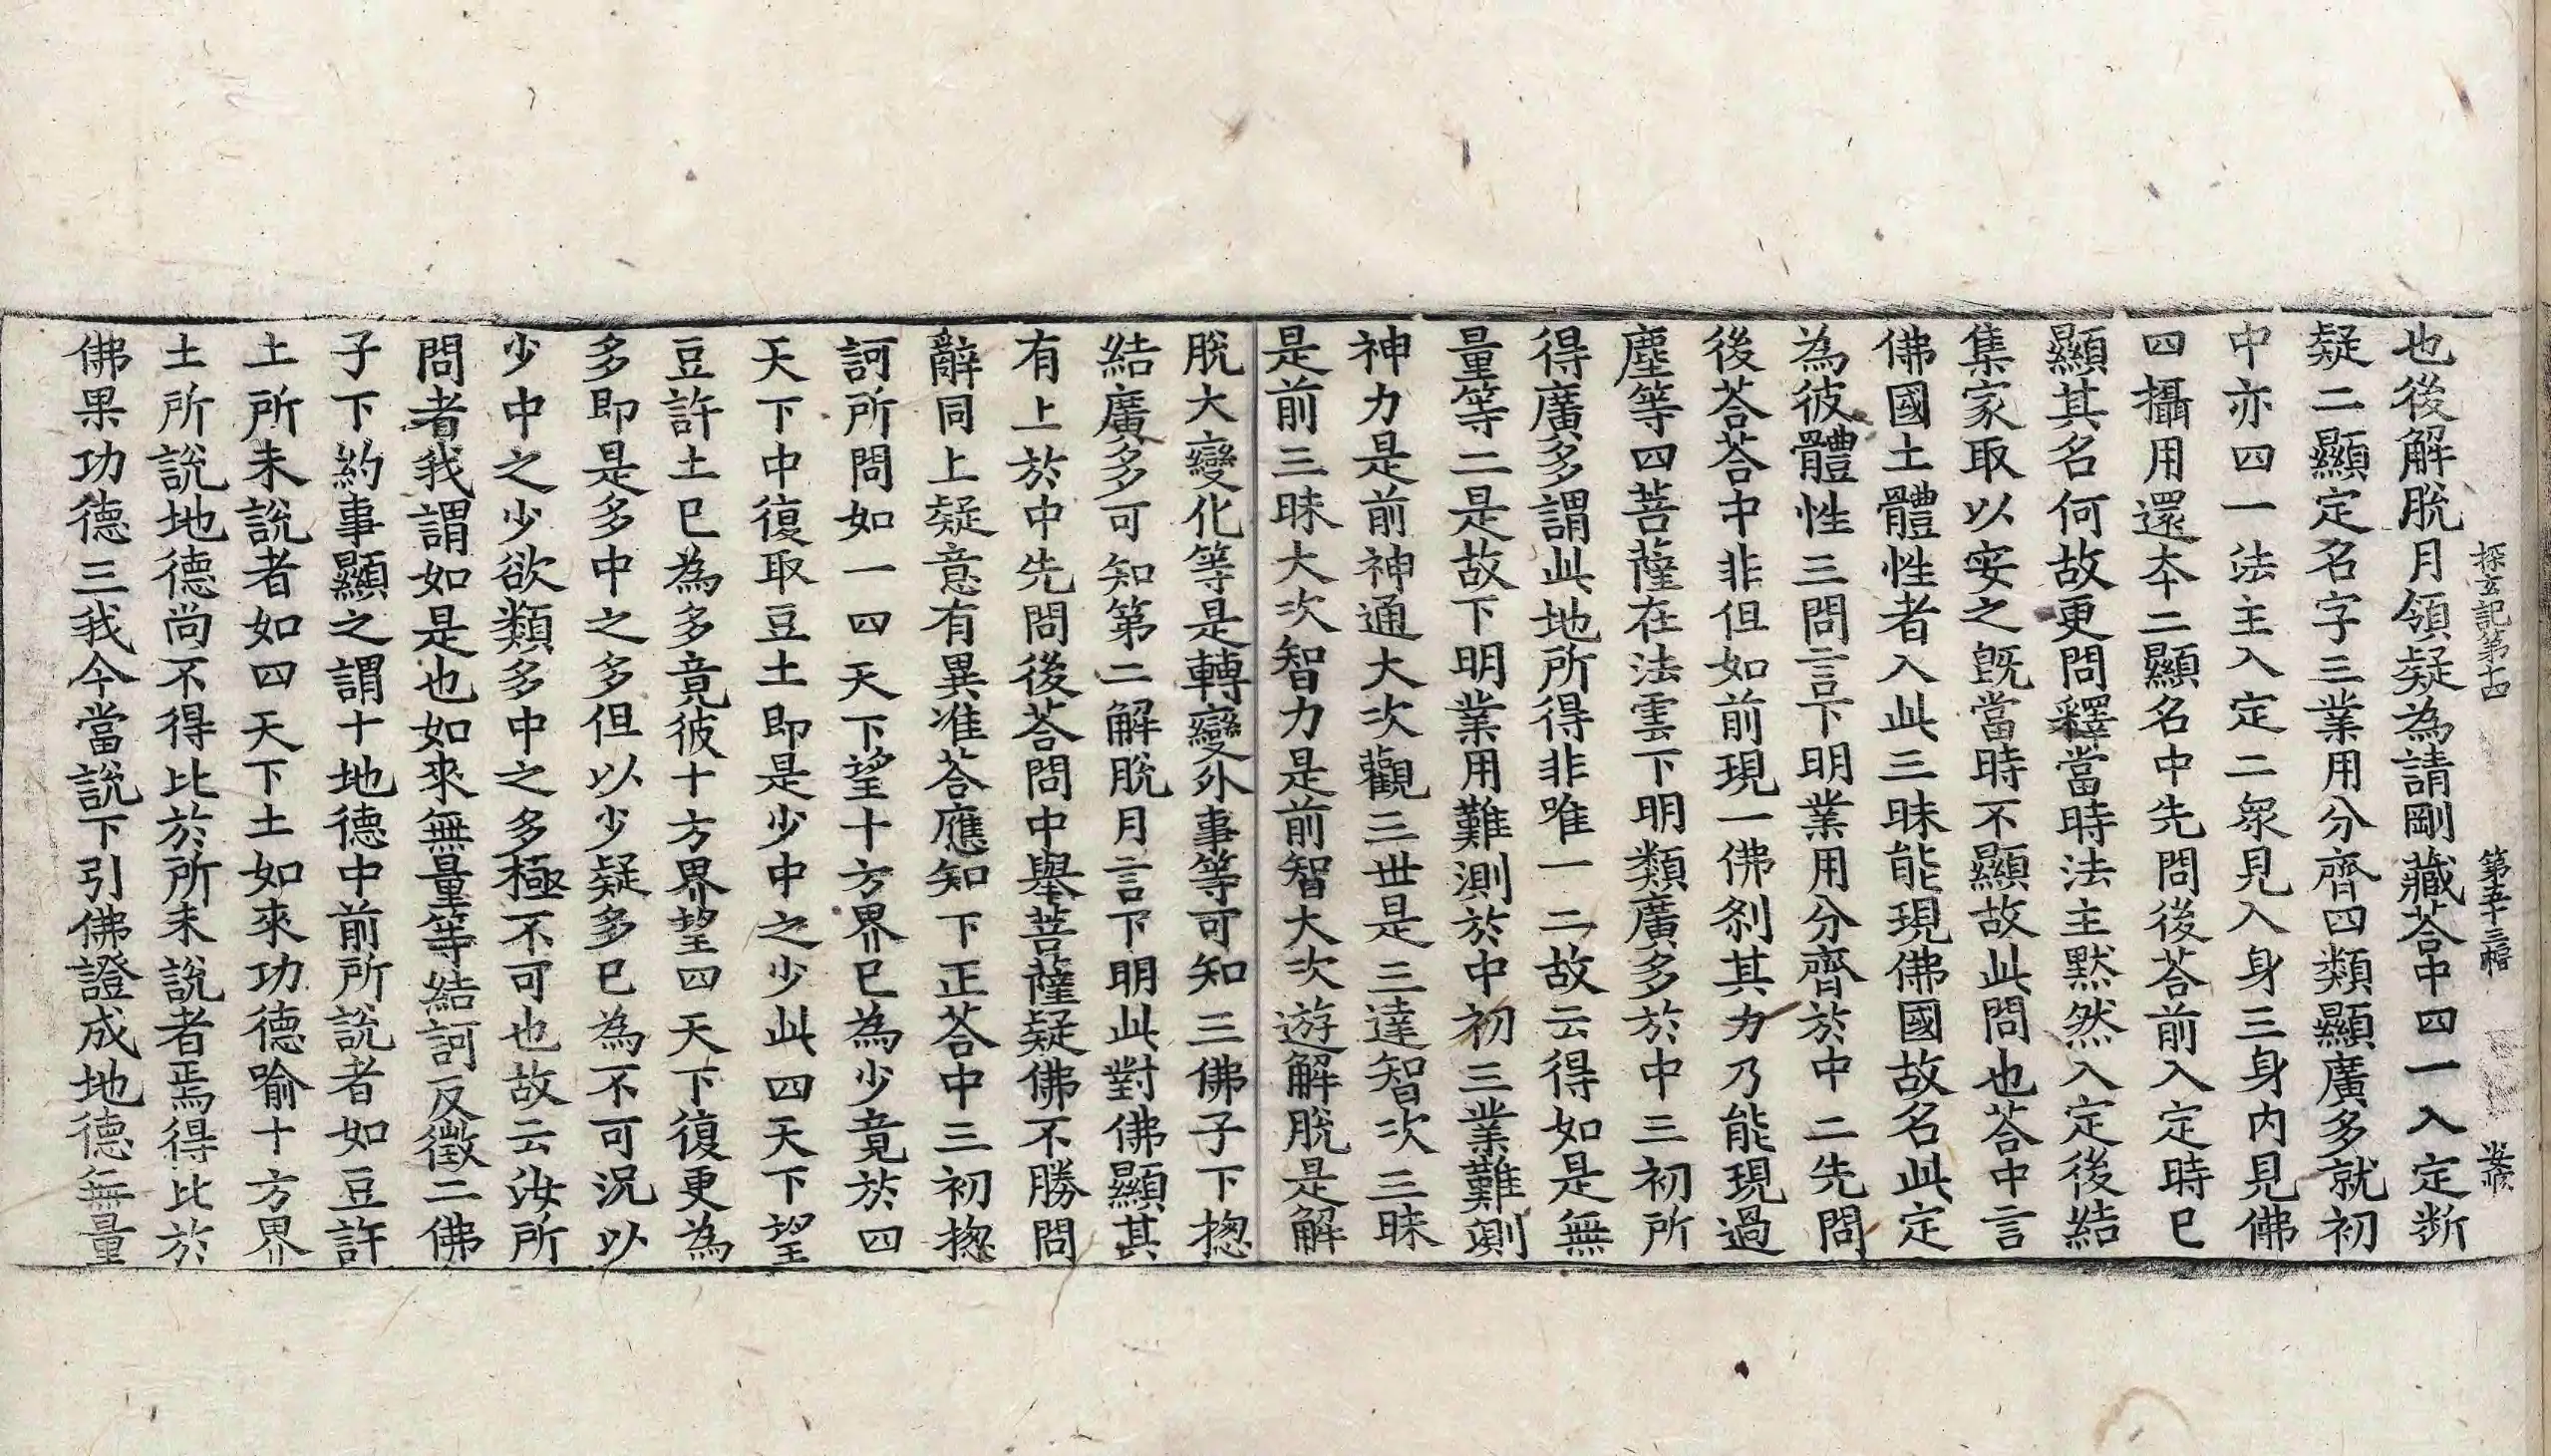 探玄記第十四 第五十三幅
也後解脫月領疑為請剛藏荅中四一入定斷
疑二顯定名字三業用分齊四類顯廣多就初
中亦四一法主入定二衆見入身三身内見佛
四攝用還夲二顯名中先問後荅前入定時已
顯其名何故更問釋當時法主默然入定後結
集家取以安之旣當時不顯故此問也荅中言
佛國土體性者入此三昧能現佛國故名此定
為彼體性三問言下明業用分齊於中二先問
後荅荅中非但如前現一佛刹其力乃能現過
塵等四菩薩在法雲下明類廣多於中三初所
得廣多謂此地所得非唯一二故云得如是無
量等二是故下明業用難測於中初三業難測
神力是前神通大次觀三世是三達智次三昧
是前三昧大次智力是前智大次遊解脫是解
脫大變化等是轉變外事等可知三佛子下揔
結廣多可知第二解脫月言下明此對佛顯其
有上於中先問後荅問中舉菩薩疑佛不勝問
辭同上疑意有異准荅應知下正荅中三初揔
訶所問如一四天下望十方界已為少竟於四
天下中復取豆土即是少中之少此四天下望
豆許土已為多竟彼十方界望四天下復更為
多即是多中之多但以少疑多已為不可況以
少中之少欲類多中之多極不可也故云汝所
問者我謂如是也如來無量等結訶反徵二佛
子下約事顯之謂十地德中前所說者如豆許
土所未說者如四天下土如來功德喻十方界
土所說地德尚不得比於所未說者焉得比於
佛果功德三我今當說下引佛證成地德無量